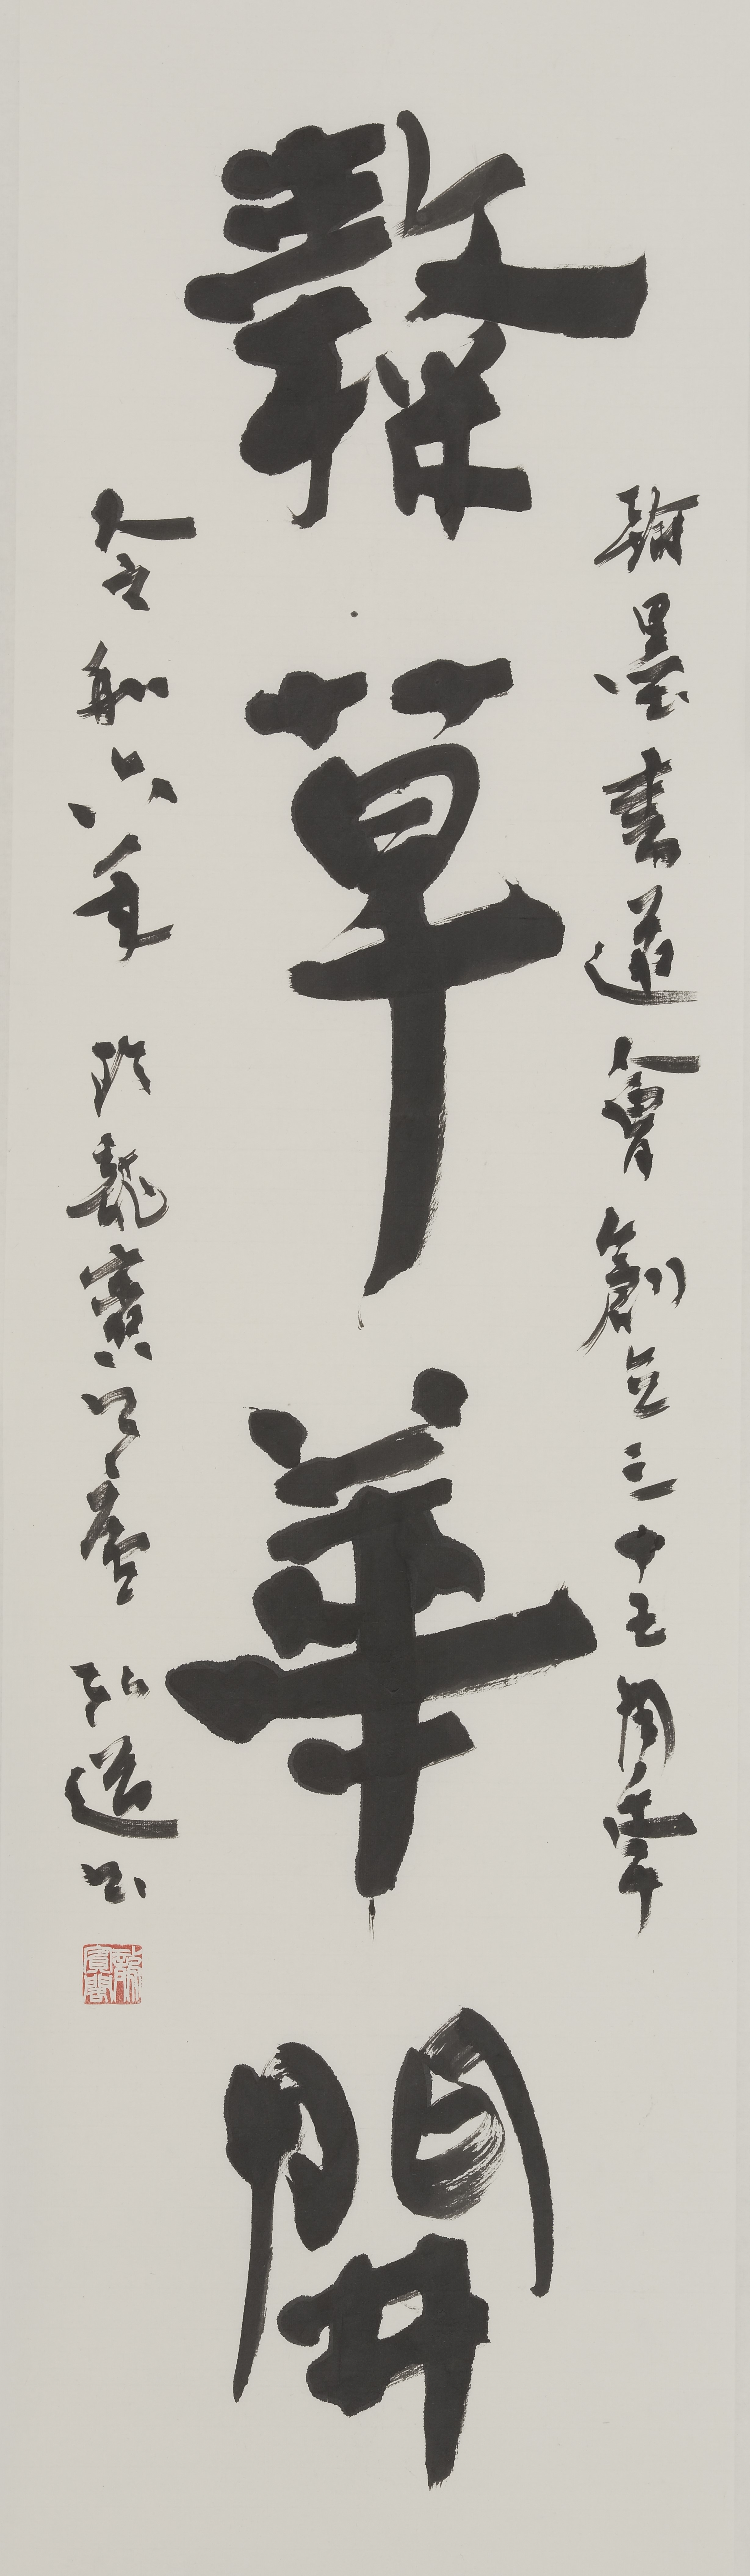 翰墨書道會創立三十五周年
草華開
令和六年 於龍賓 弘道書